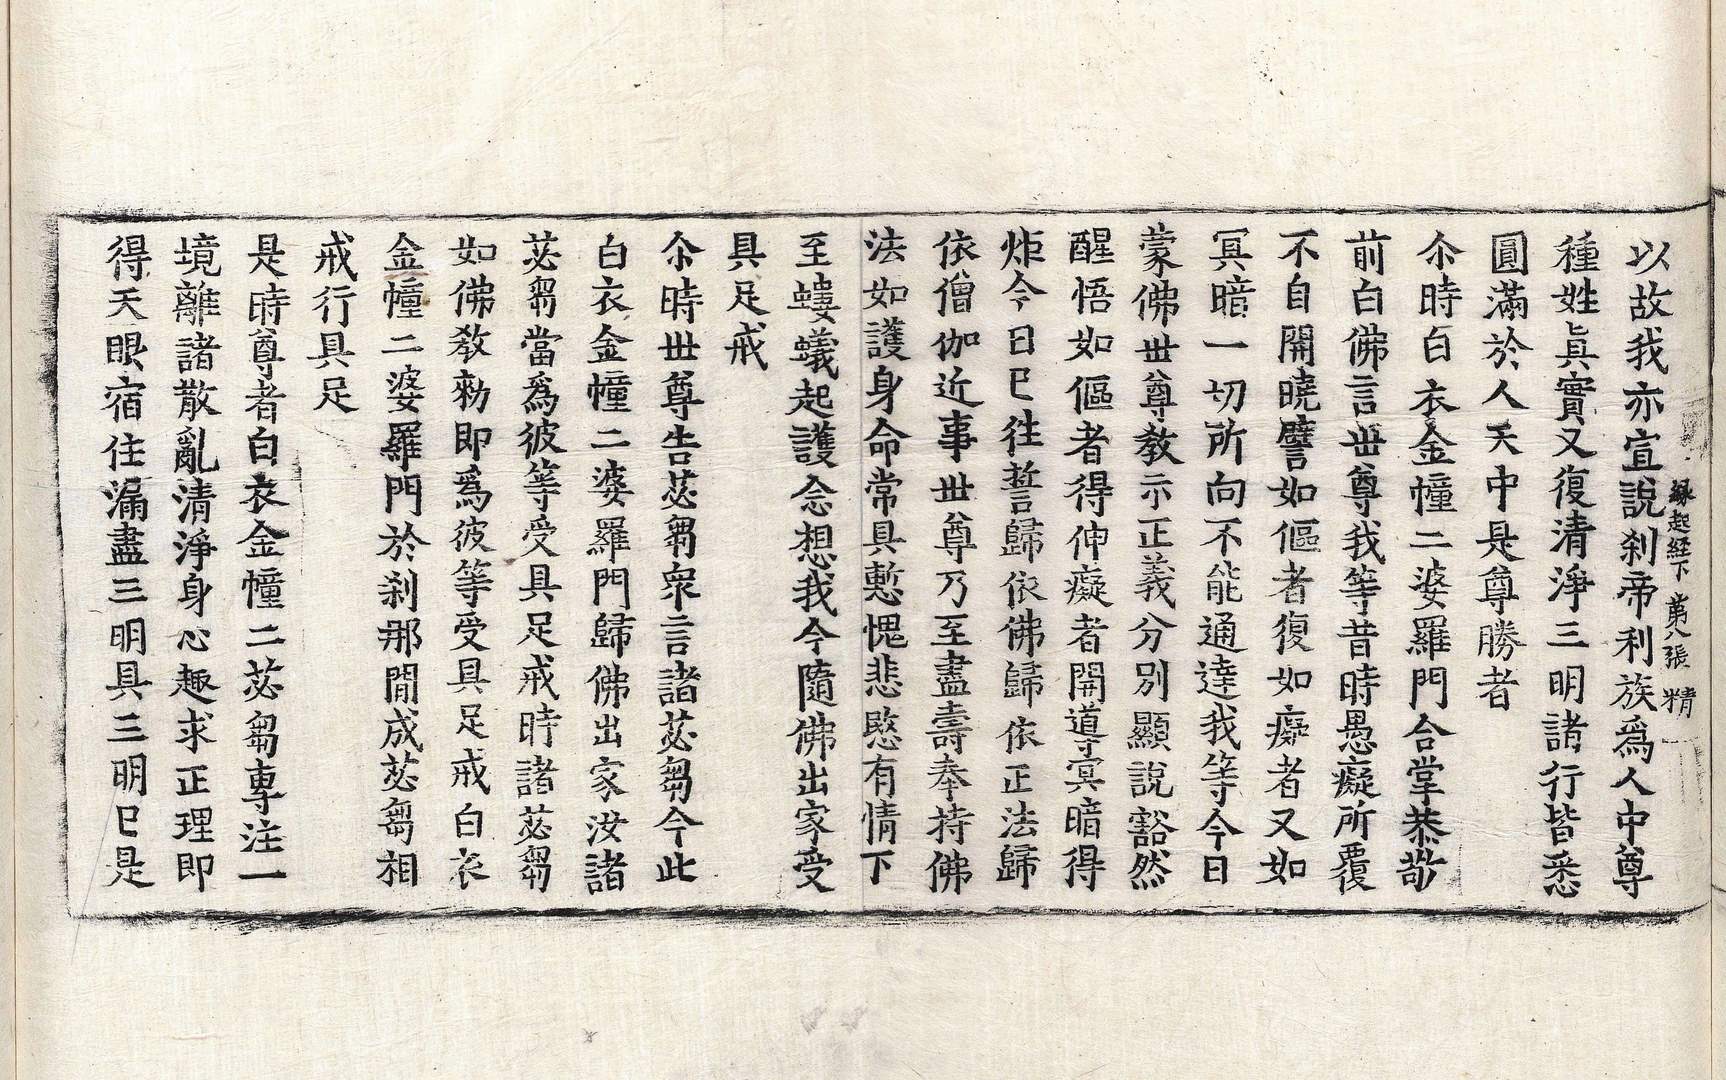 縁起経下 第八張 精
以故我亦宣說刹帝利族爲人中尊
種姓眞實又復清淨三明諸行皆悉
圓滿於人天中是尊勝者
尒時白衣金幢二婆羅門合掌恭敬
前白佛言世尊我等昔時愚癡所覆
不自開曉譬如傴者復如癡者又如
冥暗一切所向不能通達我等今日
蒙佛世尊教示正義分別顯說豁然
醒悟如傴者得伸癡者開導冥暗得
炬今日已往誓歸依佛歸依正法歸
依僧伽近事世尊乃至盡壽奉持佛
法如護身命常具慙愧悲愍有情下
至螻蟻起護念想我今隨佛出家受
具足戒
尒時世尊告苾芻衆言諸苾芻今此
白衣金幢二婆羅門歸佛出家汝諸
苾芻當爲彼等受具足戒時諸苾芻
如佛教勑即爲彼等受具足戒白衣
金幢二婆羅門於刹那間成苾芻相
戒行具足
是時尊者白衣金幢二苾芻專注一
境離諸散亂清淨身心趣求正理即
得天眼宿住漏盡三明具三明已是